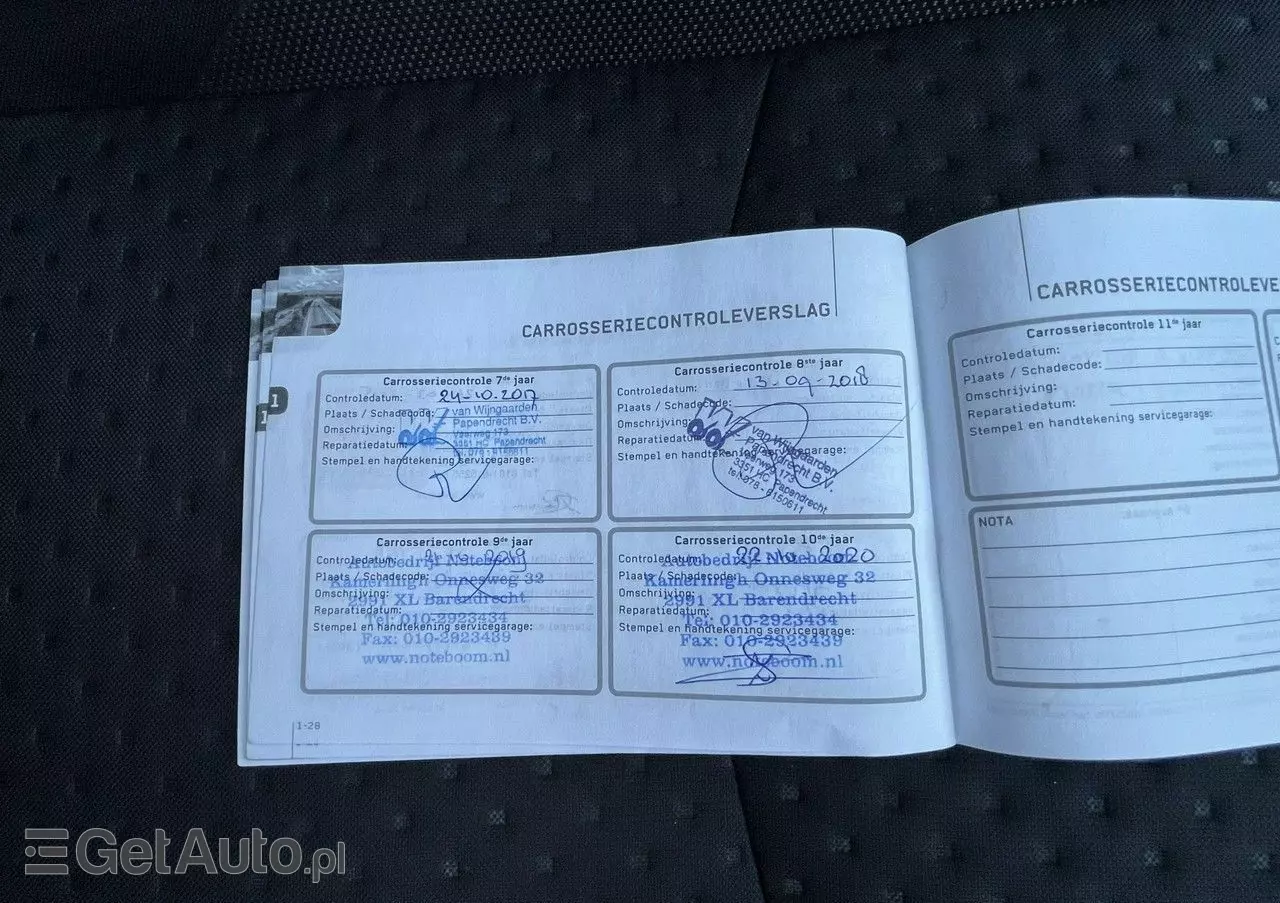 CARROSSERIECONTROLEVERSLAG
Carrosseriecontrole 7de jaar
Controledatum: 24-10-2017
Plaats / Schadecode:
van Wijngaarden
Omschrijving:
Papendrecht B.V.
Reparatiedatum:
3351 HC Papendrecht
Stempel en handtekening servicegarage:
Carrosseriecontrole 8ste jaar
Controledatum: 13-09-2018
Plaats / Schadecode:
Omschrijving:
Reparatiedatum:
Stempel en handtekening servicegarage:
van Wijngaarden
Papendrecht B.V.
Vaarweg 173
3351 HC Papendrecht
tel. 078 - 6150611
Carrosseriecontrole 9de jaar
Controledatum: 2019
Autobedrijf Noteboom
Plaats / Schadecode:
Kamerlingh Onnesweg 32
Omschrijving:
2991 XL Barendrecht
Reparatiedatum:
Tel: 010-2923434
Stempel en handtekening servicegarage:
Fax: 010-2923439
www.noteboom.nl
Carrosseriecontrole 10de jaar
Controledatum: 22-10-2020
Autobedrijf Noteboom
Plaats / Schadecode:
Kamerlingh Onnesweg 32
Omschrijving:
2991 XL Barendrecht
Reparatiedatum:
Tel: 010-2923434
Stempel en handtekening servicegarage:
Fax: 010-2923439
www.noteboom.nl
1
1
1-28
CARROSSERIECONTROLEVE
Carrosseriecontrole 11de jaar
Controledatum:
Plaats / Schadecode:
Omschrijving:
Reparatiedatum:
Stempel en handtekening servicegarage:
NOTA
GetAuto.pl